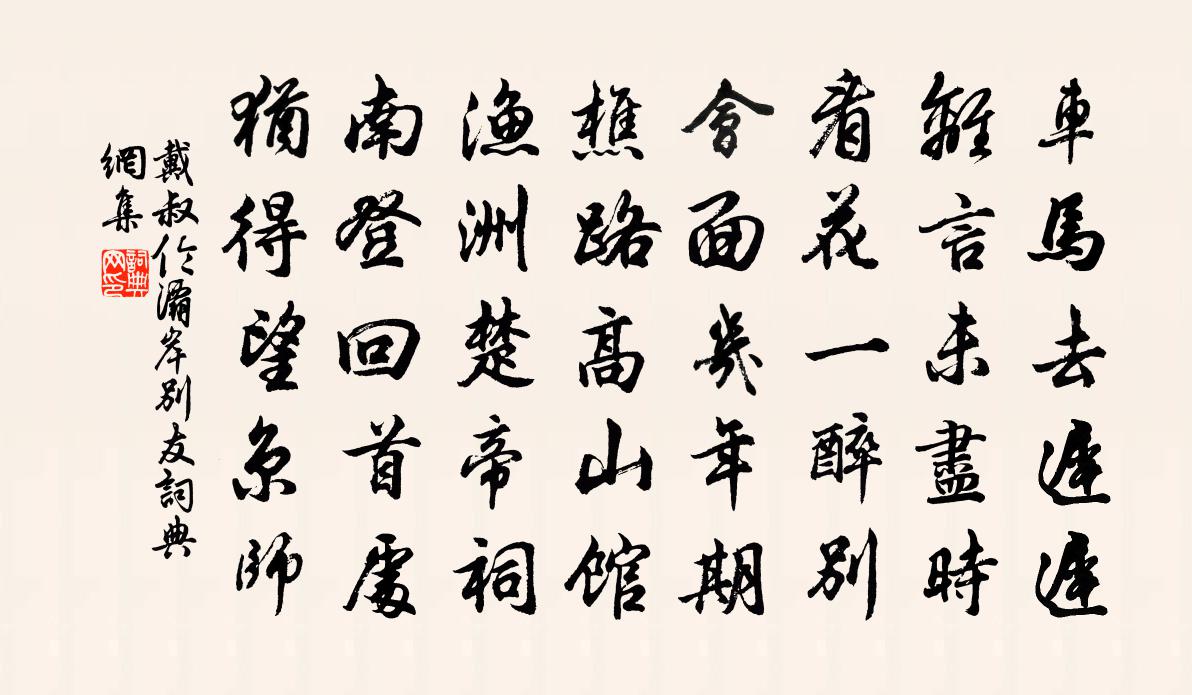 車馬去遲遲
離言未盡時
看花一醉別
會面幾年期
樵路高山館
漁洲楚帝祠
南登回首處
猶得望京師
戴叔伦灞岸別友詞典
網集
詞典網印